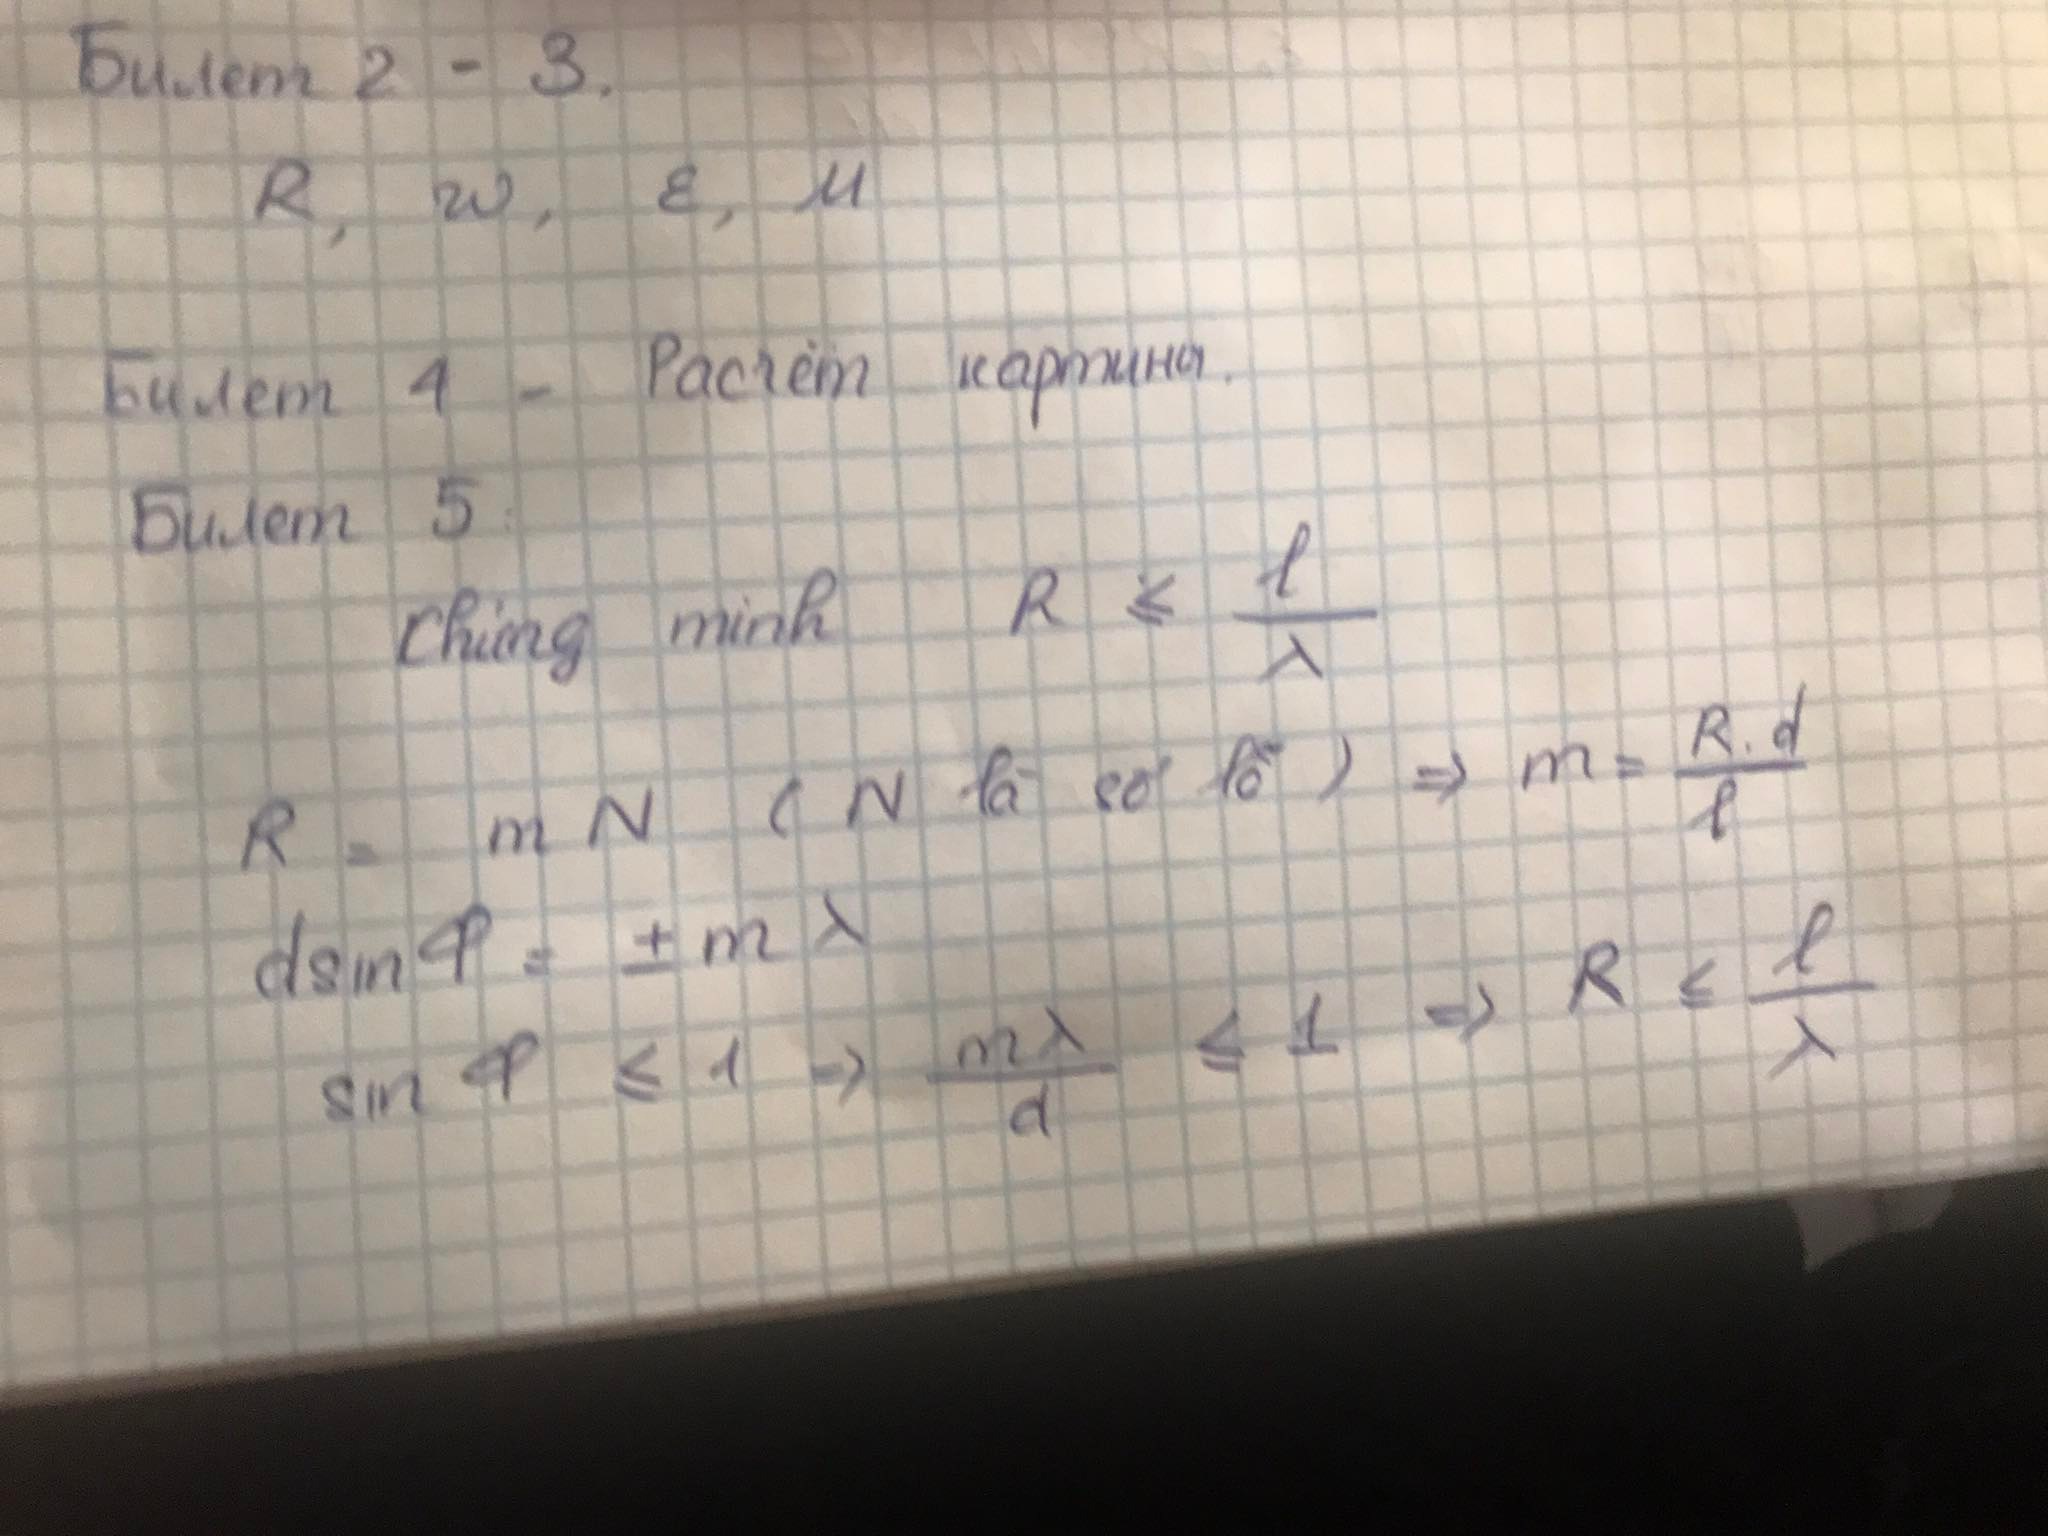 Билет 2 - 3.
R, w, ε, μ
Билет 4 - Расчёт картины.
Билет 5:
Chứng minh R ≤ l/λ
R = mN (N là số lỗ) => m = R.d/l
dsinφ = ± mλ
sinφ ≤ 1 => mλ/d ≤ 1 => R ≤ l/λ